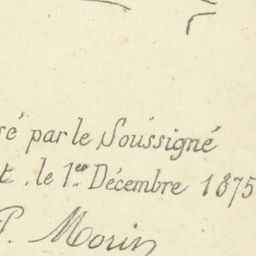 ré par le Soussigné
t, le 1er Décembre 1875
P. Morin